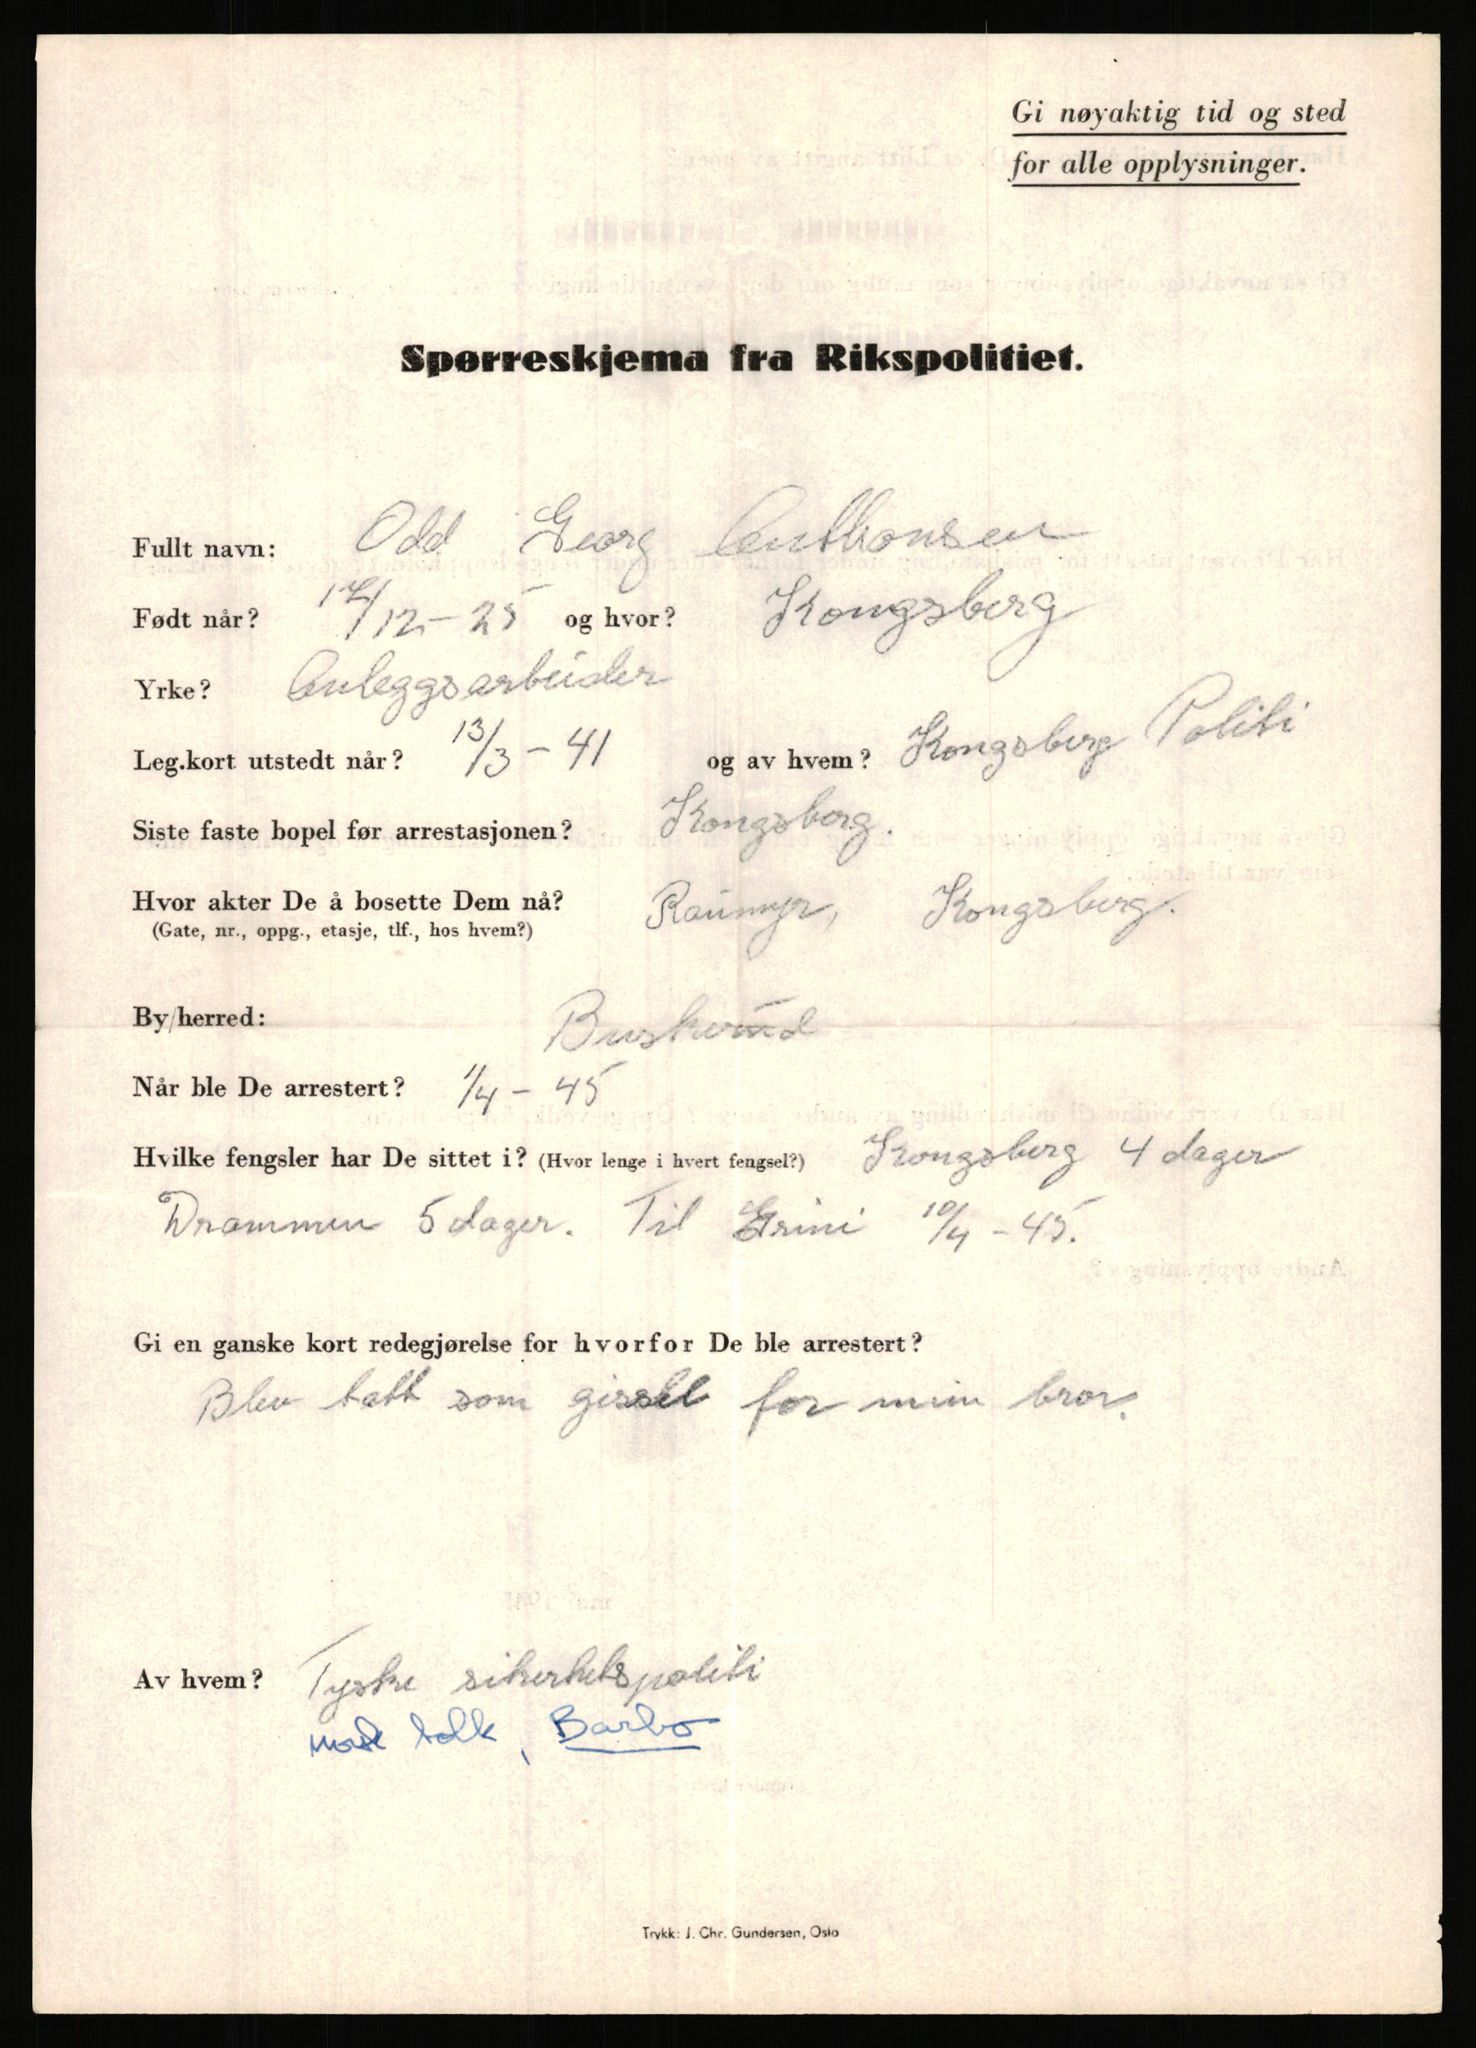 Gi nøyaktig tid og sted
for alle opplysninger.
Spørreskjema fra Rikspolitiet.
Fullt navn: Odd Georg Anthonsen
Født når? 17/12 - 25 og hvor? Kongsberg
Yrke? Anleggsarbeider
Leg.kort utstedt når? 13/3 - 41 og av hvem? Kongsberg Politi
Siste faste bopel før arrestasjonen? Kongsberg.
Hvor akter De å bosette Dem nå? Raumyr, Kongsberg.
(Gate, nr., oppg., etasje, tlf., hos hvem?)
By/herred: Buskerud
Når ble De arrestert? 1/4 - 45
Hvilke fengsler har De sittet i? (Hvor lenge i hvert fengsel?) Kongsberg 4 dager
Drammen 5 dager. Til Grini 10/4 - 45.
Gi en ganske kort redegjørelse for hvorfor De ble arrestert?
Blev tatt som gissel for min bror.
Av hvem? Tyske sikerhetspoliti
norsk tolk, Barbo
Trykk: J. Chr. Gundersen, Oslo